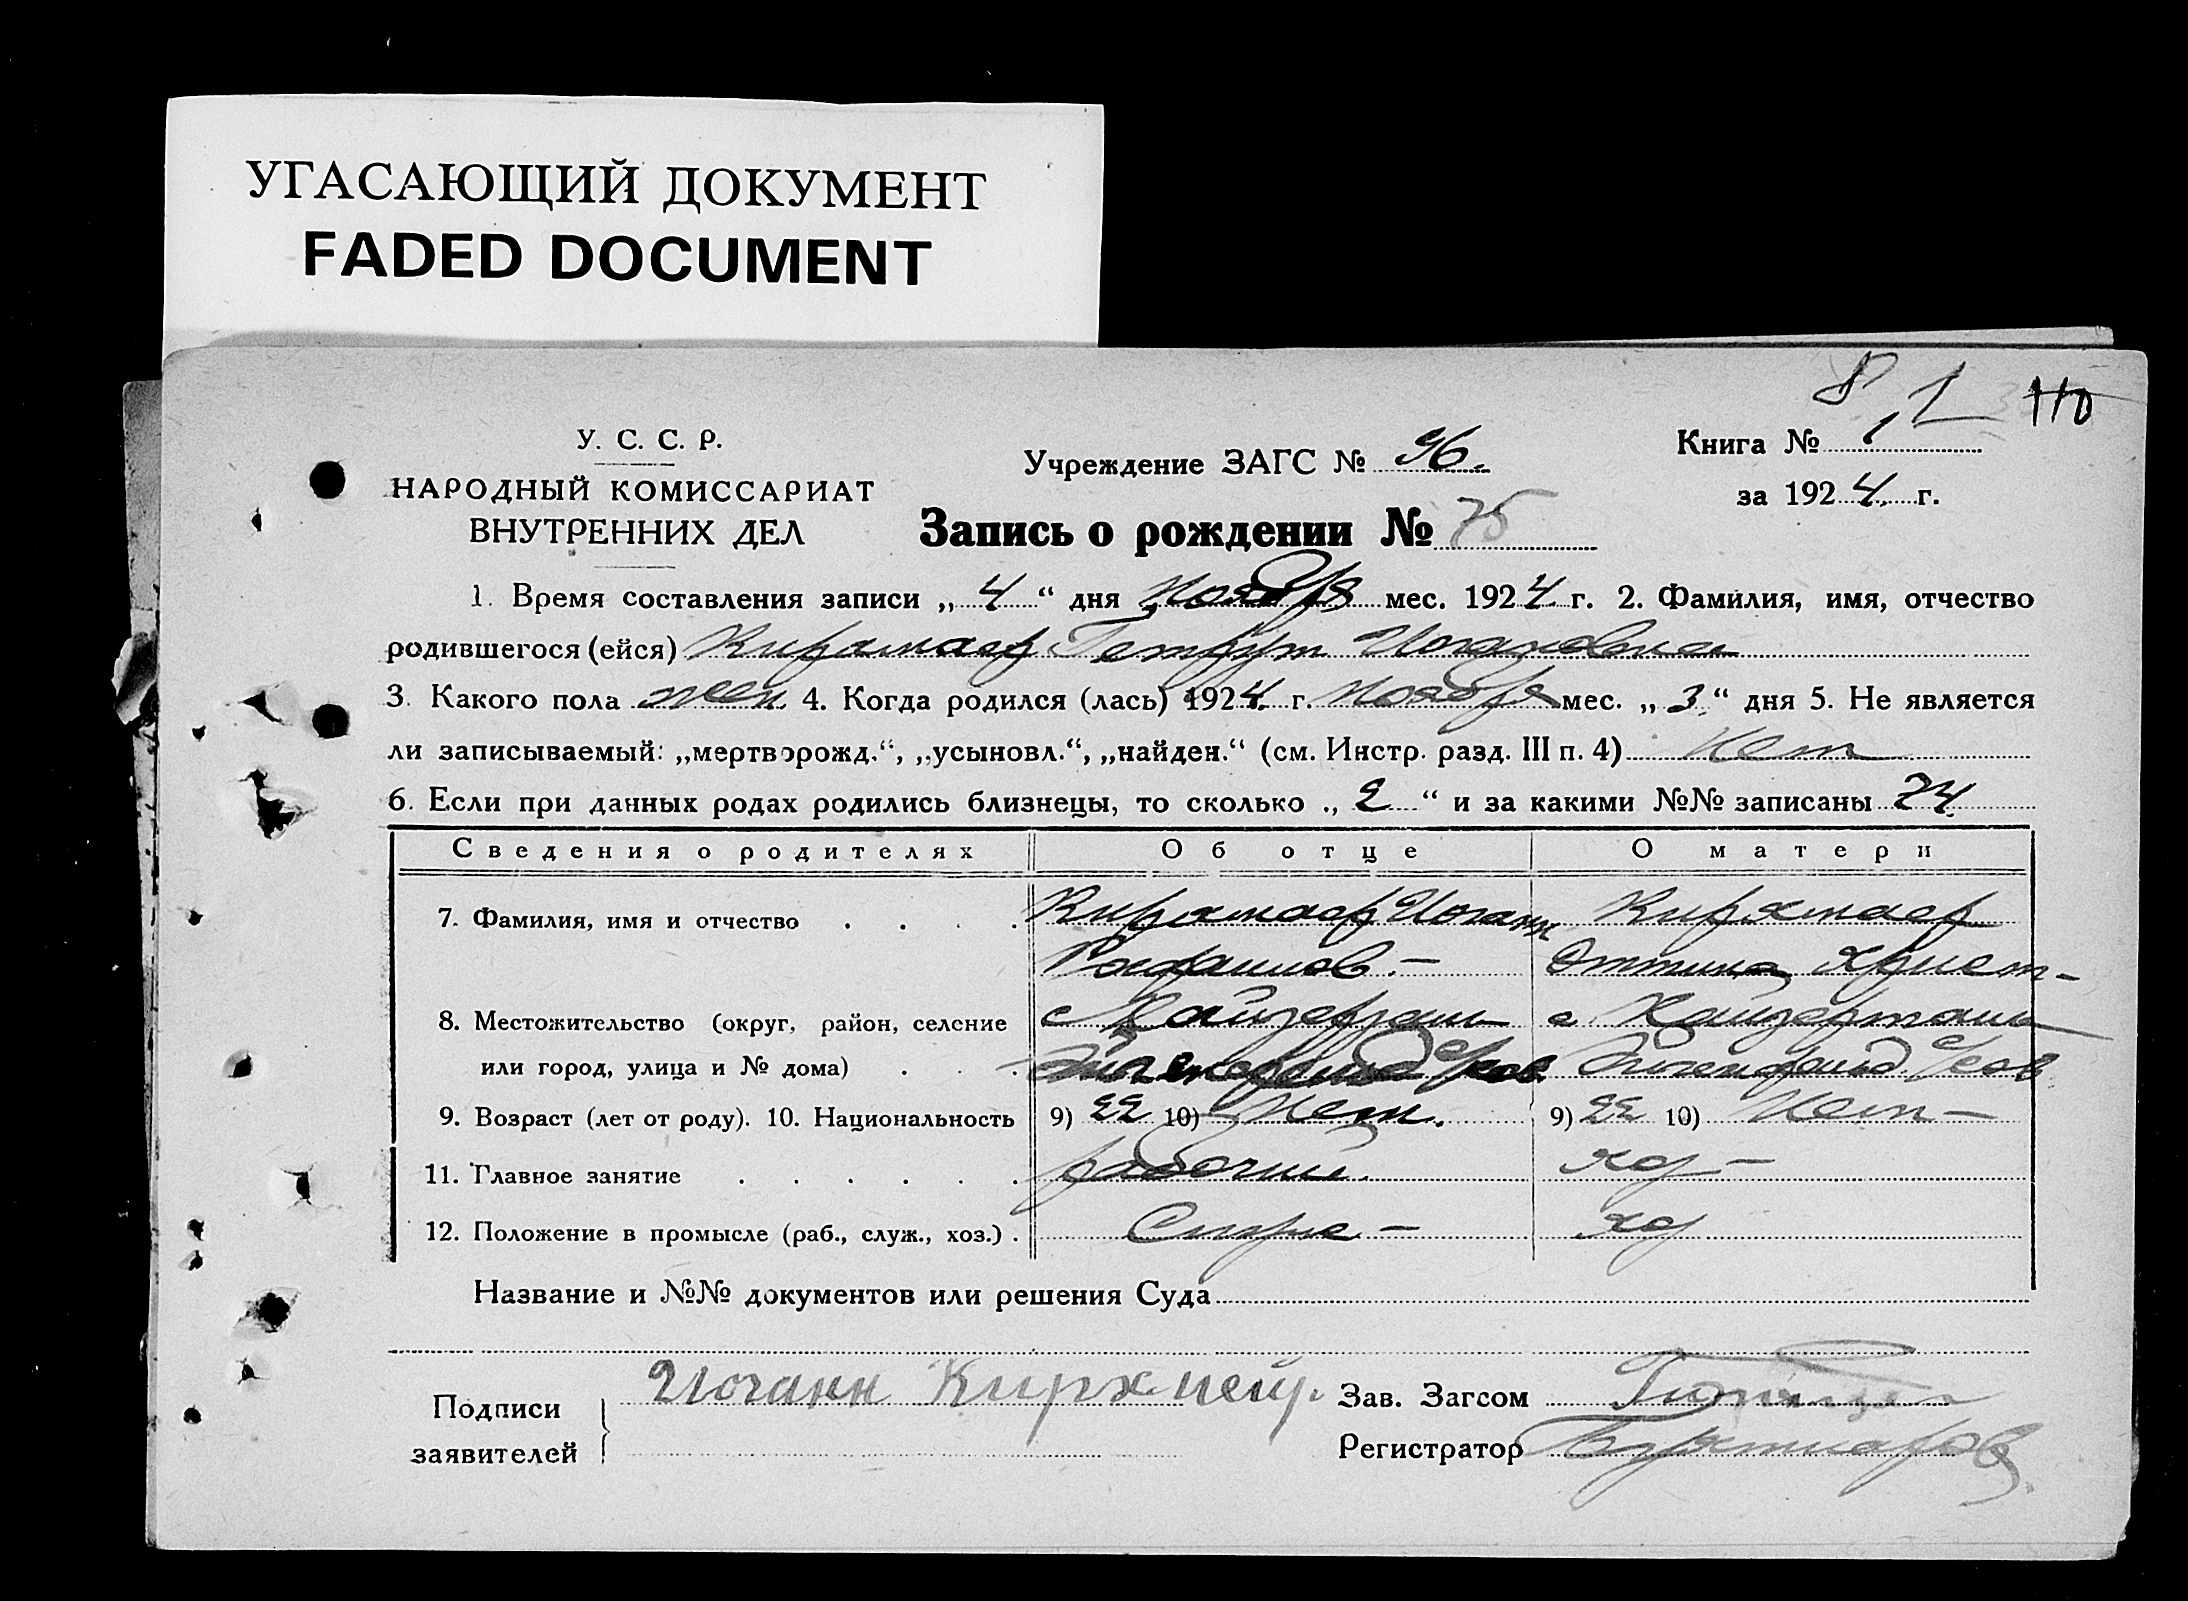 УГАСАЮЩИЙ ДОКУМЕНТ
FADED DOCUMENT
8, 1 110
У. С. С. Р.
НАРОДНЫЙ КОМИССАРИАТ
ВНУТРЕННИХ ДЕЛ
Учреждение ЗАГС № 96.
Книга № 1
за 1924 г.
Запись о рождении № 75
1. Время составления записи „4“ дня Ноября мес. 1924 г. 2. Фамилия, имя, отчество
родившегося (ейся) Кирхмаер Гетрут Иогановна
3. Какого пола жен. 4. Когда родился (лась) 1924 г. Ноября мес. „3“ дня 5. Не является
ли записываемый: „мертворожд.“, „усыновл.“, „найден.“ (см. Инстр. разд. III п. 4) Нет
6. Если при данных родах родились близнецы, то сколько „2“ и за какими №№ записаны 74
Сведения о родителях Об отце О матери
7. Фамилия, имя и отчество Кирхмаер Иоганн Кирхмаер
Христ-
8. Местожительство (округ, район, селение с с
или город, улица и № дома)
9. Возраст (лет от роду). 10. Национальность 9) 22 10) Нем. 9) 22 10) Нем –
11. Главное занятие рабочий.
12. Положение в промысле (раб., служ., хоз.)
Название и №№ документов или решения Суда
Подписи
заявителей
Иоганн Кирхмеир.
Зав. Загсом
Регистратор